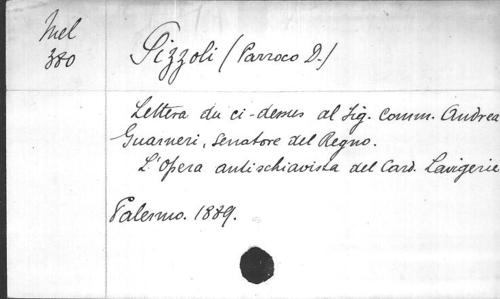 Mel
380
Pizzoli (Parroco D.)
Lettera du ci-demes al Sig. Comm. Andrea
Guarneri, Senatore del Regno.
L'Opera antischiavista del Card. Lavigerie
Palermo. 1889.